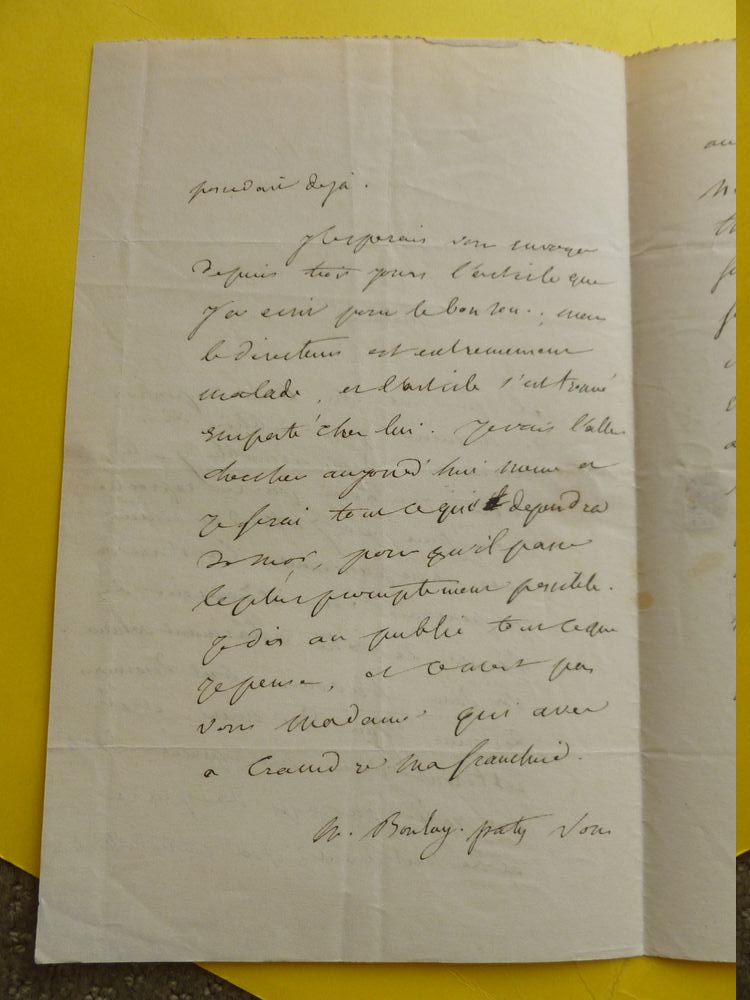 possedait deja.
J'esperais vous envoyer
depuis trois jours l'article que
J'ai ecrit pour le bon ton., mais
le directeur est extremement
malade, et l'article s'est trouvé
emporté chez lui. Je vais l'aller
chercher aujourd'hui meme et
Je ferai tout ce qui dependra
de moi, pour qu'il passe
le plus promptement possible.
Je dis au public tout ce que
Je pense, et ce n'est pas
vous Madame qui avez
a craind re ma franchise.
M. Boulay-paty vous
au